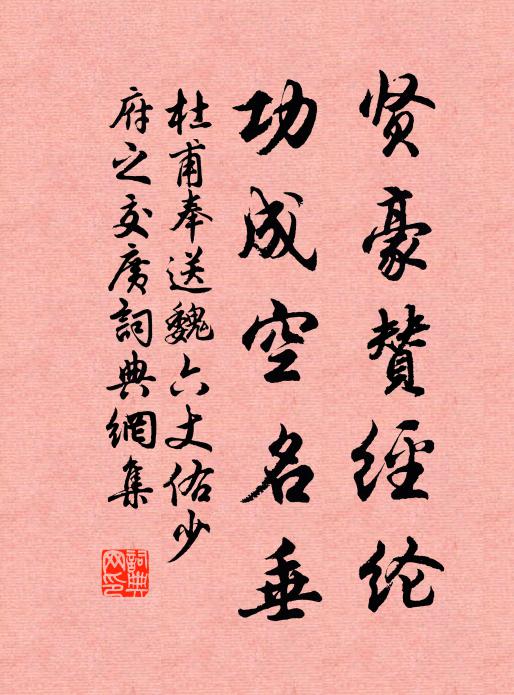 贤豪赞經纶
功成空名垂
杜甫奉送魏六丈佑少
府之交广詞典網集
詞典網印